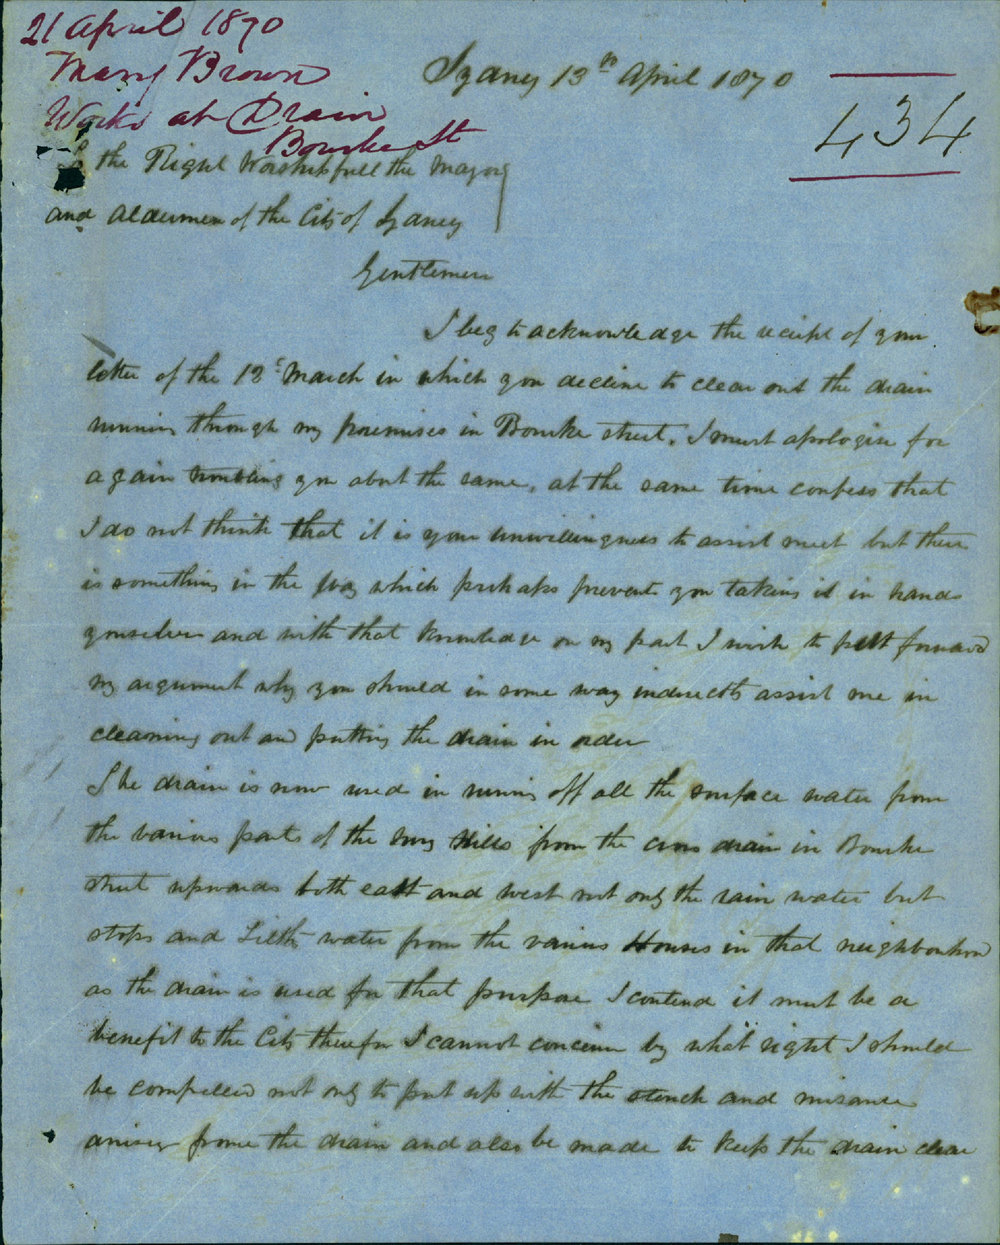 21 April 1870
Mary Brown
Works at Drain
Bourke St
Sydney 13th April 1870
434
To the Right Worshipfull the Mayor
and Aldermen of the City of Sydney
Gentlemen
I beg to acknowledge the receipt of your
letter of the 12t March in which you decline to clear out the drain
running through my premises in Bourke street. I must apologise for
again troubling you about the same, at the same time confess that
I do not think that it is your unwillingness to assist meet but there
is something in the way which perhaps prevents you taking it in hands
yourselves and with that knowledge on my part I wish to putt forward
my argument why you should in some way indirectly assist me in
cleaning out and putting the drain in order
The drain is now used in runing off all the surface water from
the various parts of the Surry Hills from the cross drain in Bourke
street upwards both east and west not only the rain water but
slops and Filthy water from the various Houses in that neighbourhood
as the drain is used for that purpose I contend it must be a
benefit to the City therefor I cannot conceive by what right I should
be compelled not only to put up with the stench and nuisance
arising frome the drain and also be made to keep the drain clear